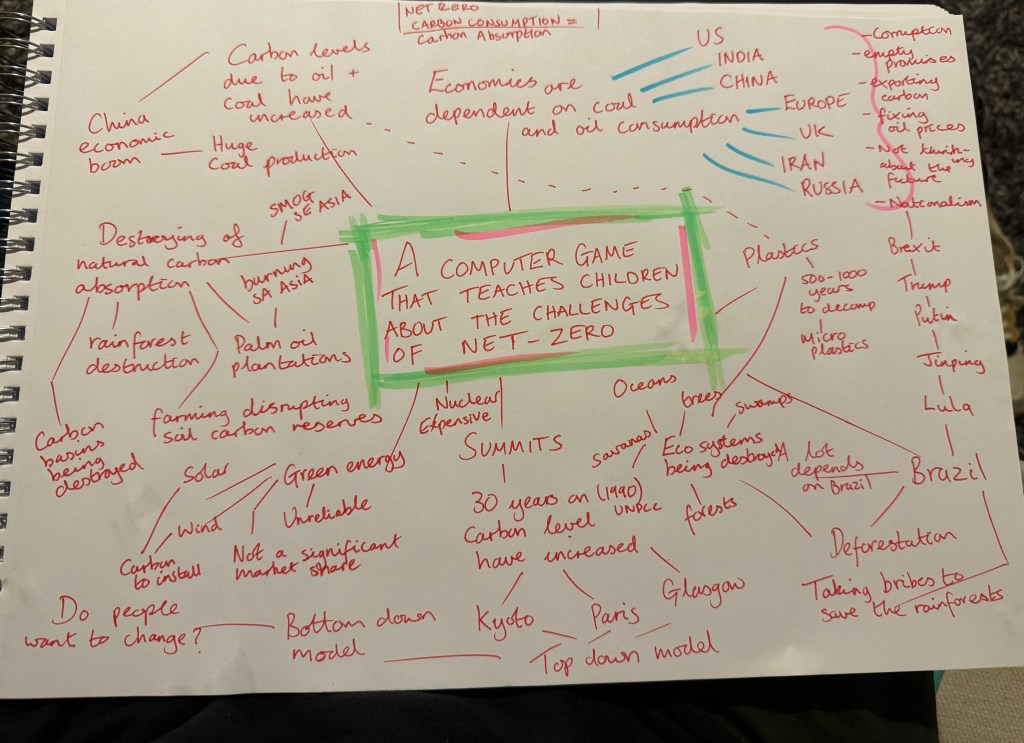 NET ZERO
CARBON CONSUMPTION =
Carbon Absorption
Carbon levels
due to oil +
coal have
increased
China
economic
boom
Huge
Coal production
Economies are
dependent on coal
and oil consumption
US
INDIA
CHINA
EUROPE
UK
IRAN
RUSSIA
- Corruption
- empty
promises
- exporting
carbon
- fixing
oil prices
- Not thinking
about the
future
- Nationalism
Brexit
Trump
Putin
Jinping
Lula
Brazil
SMOG
SE ASIA
Destroying of
natural carbon
absorption
burning
SA ASIA
rainforest
destruction
Palm oil
plantations
farming disrupting
soil carbon reserves
Carbon
basins
being
destroyed
A COMPUTER GAME
THAT TEACHES CHILDREN
ABOUT THE CHALLENGES
OF NET-ZERO
Plastics
500-1000
years
to decomp
micro
plastics
Nuclear
Expensive
Solar
Green energy
Wind
Unreliable
Carbon
to install
Not a significant
market share
SUMMITS
30 years on (1990)
Carbon level UNPCC
have increased
Kyoto
Paris
Glasgow
Top down model
Bottom down
model
Do people
want to change?
Oceans
trees
swamps
savanas
Eco systems
being destroyed
forests
A lot
depends
on Brazil
Deforestation
Taking bribes to
save the rainforests